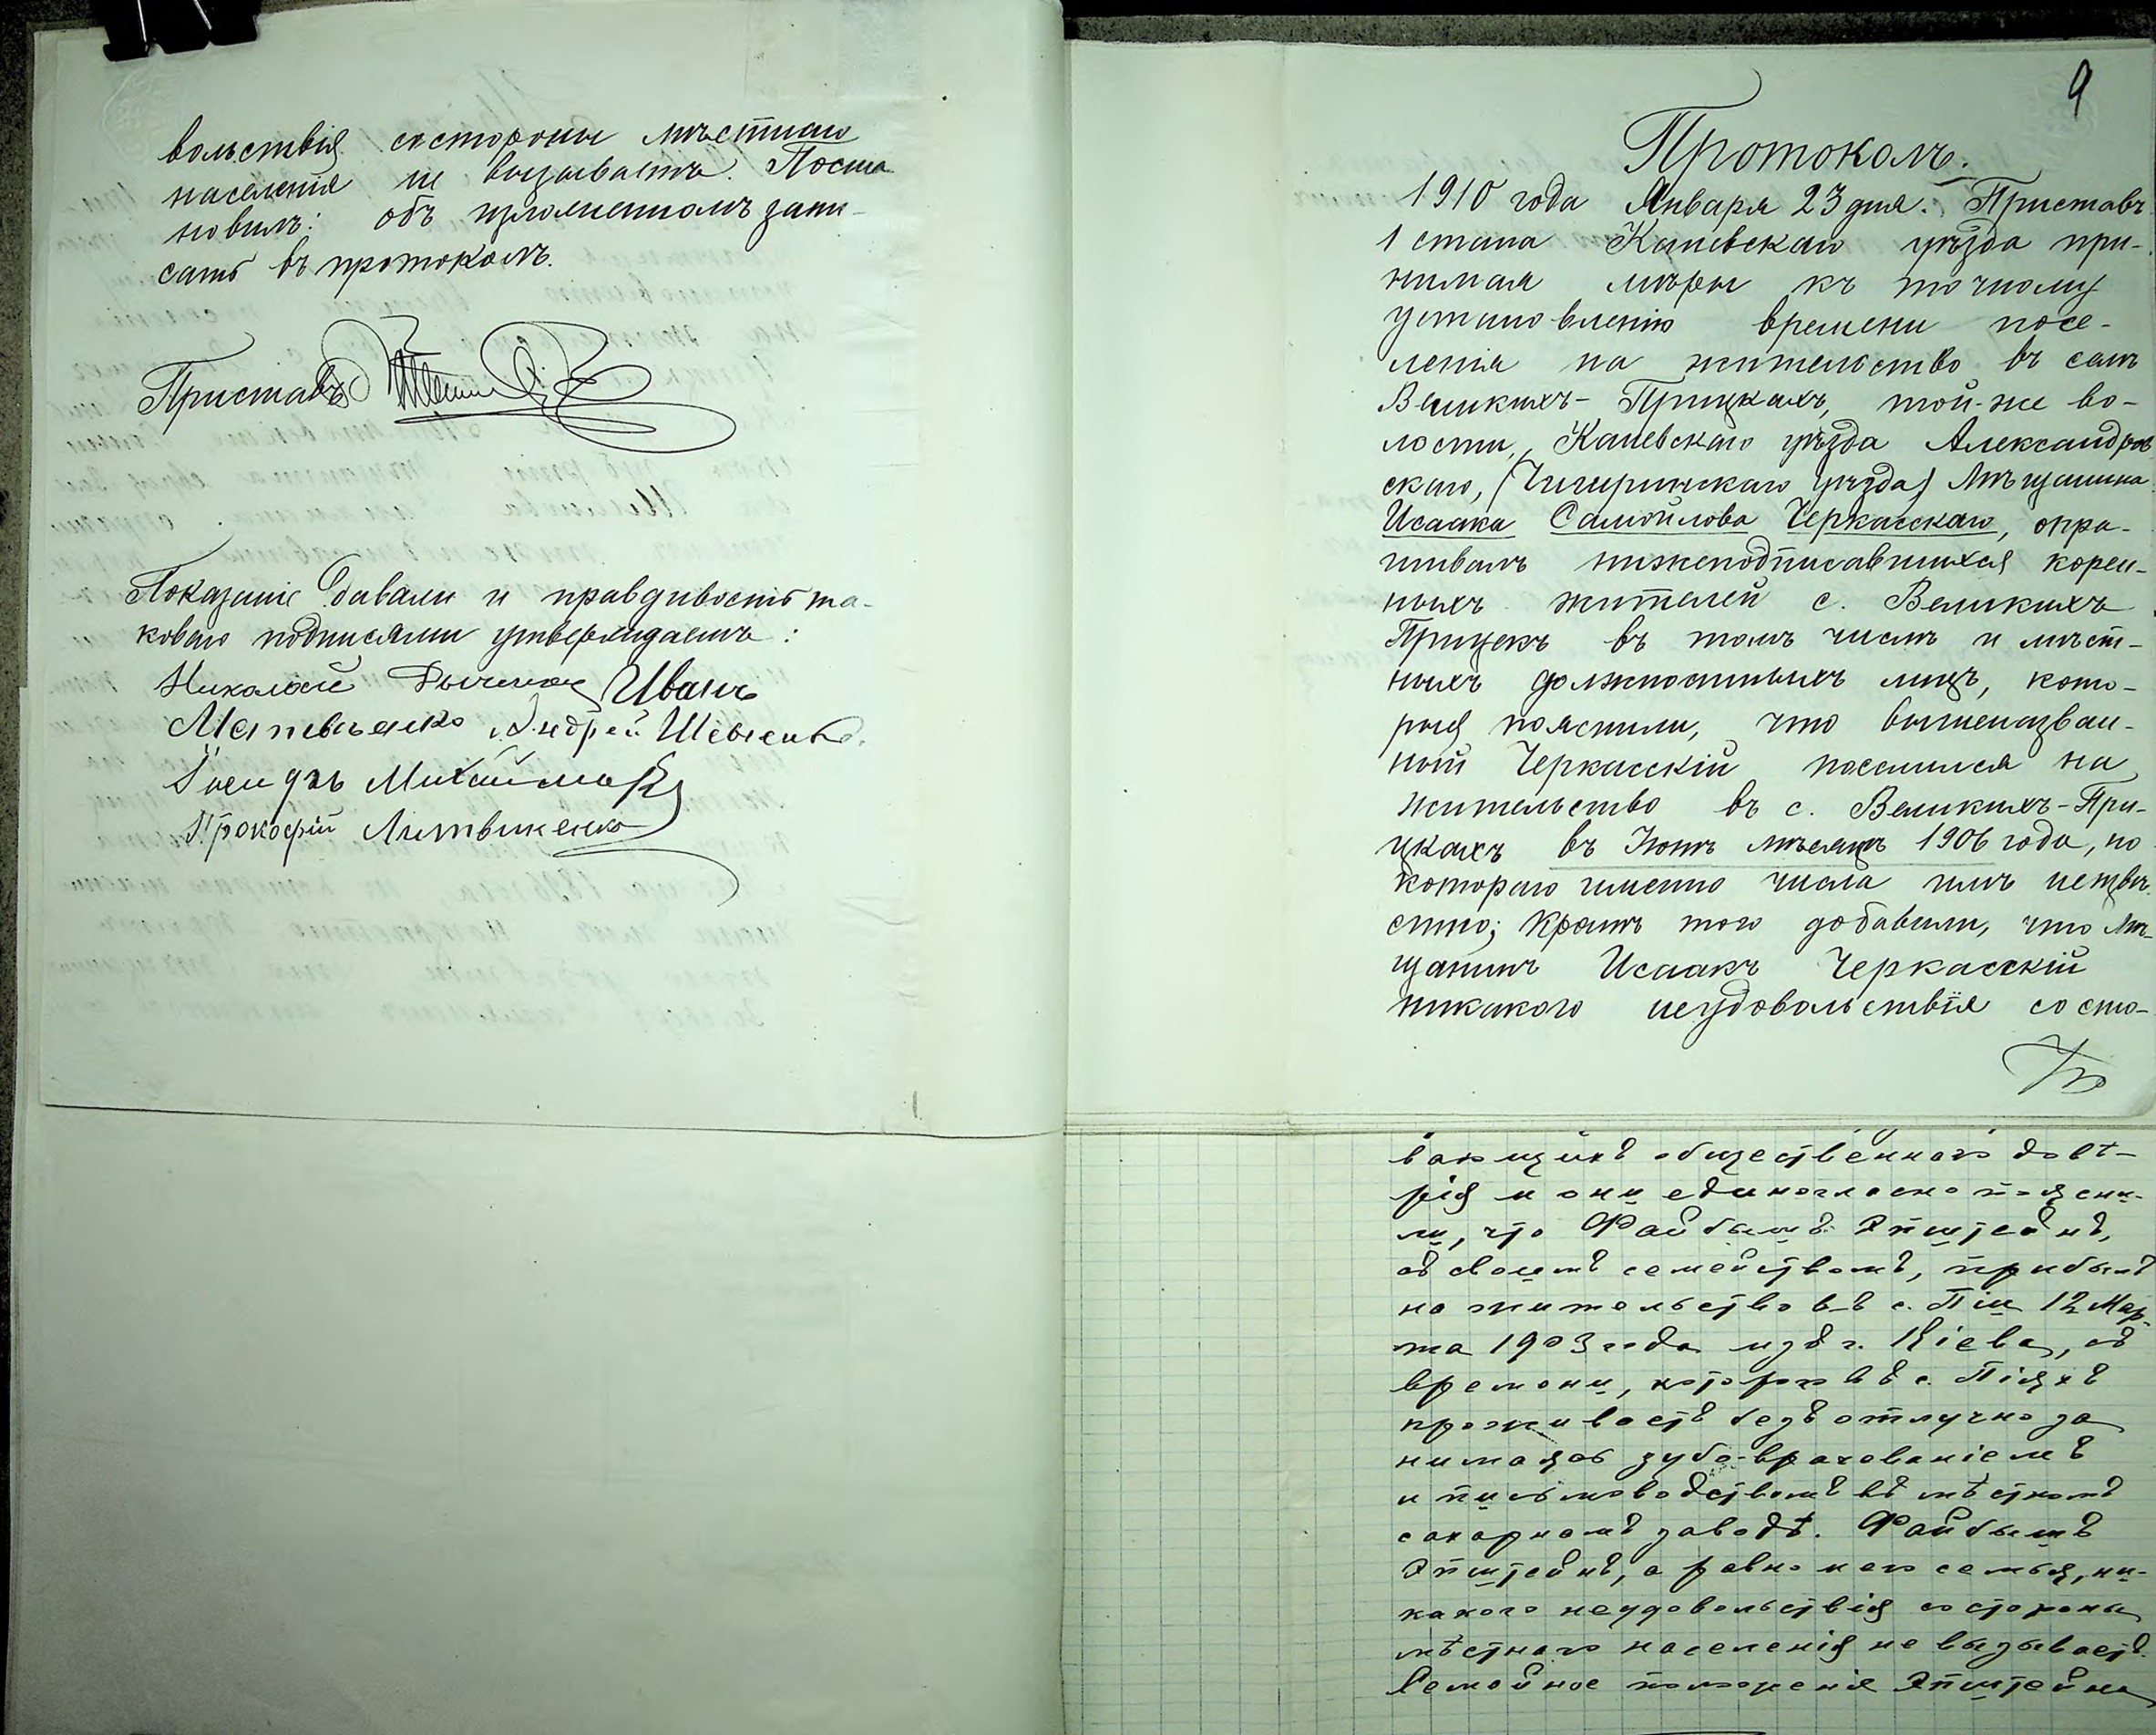 вольствія состороны мѣстнаго
населенія не вызываетъ. Поста
новилъ: объ изложенномъ запи-
сать въ протоколъ.
Приставъ
Показаніе давали и правдивость та-
коваго подписями утверждаемъ:
Николай Иванъ
Матвѣенко Андрей Шевченко
Михайлик
Прокофій Литвиненко
9
Протоколъ.
1910 года Января 23 дня. Приставъ
1 стана Каневскаго уѣзда при-
нимая мѣры къ точному
установленію времени посе-
ленія на жительство въ селѣ
Великихъ-Прицкахъ, той-же во-
лости, Каневскаго уѣзда Александров
скаго, (Чигиринскаго уѣзда) мѣщанина
Исаака Самойлова Черкасскаго, опра-
шивалъ нижеподписавшихся корен-
ныхъ жителей с. Великихъ
Прицекъ въ томъ числѣ и мѣст-
ныхъ должностныхъ лицъ, кото-
рыя пояснили, что вышеназван-
ный Черкасскій поселился на
жительство въ с. Великихъ-При-
цкахъ въ Іюнѣ мѣсяцѣ 1906 года, но
котораго именно числа имъ неизвѣ
стно; кромѣ того добавили, что мѣ-
щанинъ Исаакъ Черкасскій
никакого неудовольствія состо-
вающихъ общественнаго довѣ-
рія и они единогласно поясни-
ли, что Файбышъ Эпштейнъ,
съ своимъ семействомъ, прибылъ
на жительство въ с. Піи 12 Мар-
та 1903 года изъ г. Кіева, съ
времени, котораго въ с. Піяхъ
проживаетъ безъ отлучно за
нимаясь зубо-врачеваніемъ
и письмоводствомъ въ мѣстномъ
сахарномъ заводѣ. Файбышъ
Эпштейнъ, а равно и его семья, ни-
какого неудовольствія со стороны
мѣстнаго населенія не вызываетъ.
Семейное положеніе Эпштейна